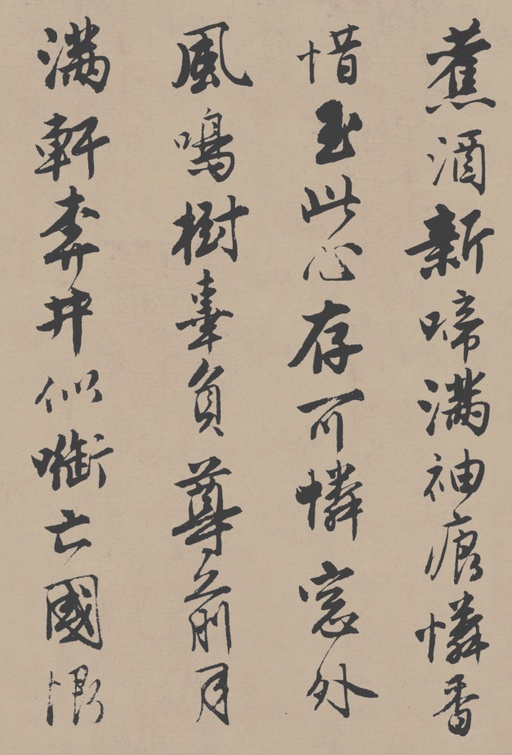 舊酒新啼滿袖痕憐香
惜玉此心存可憐窓外
風鳴樹辜負尊前月
滿軒奔井似啣亡國恨